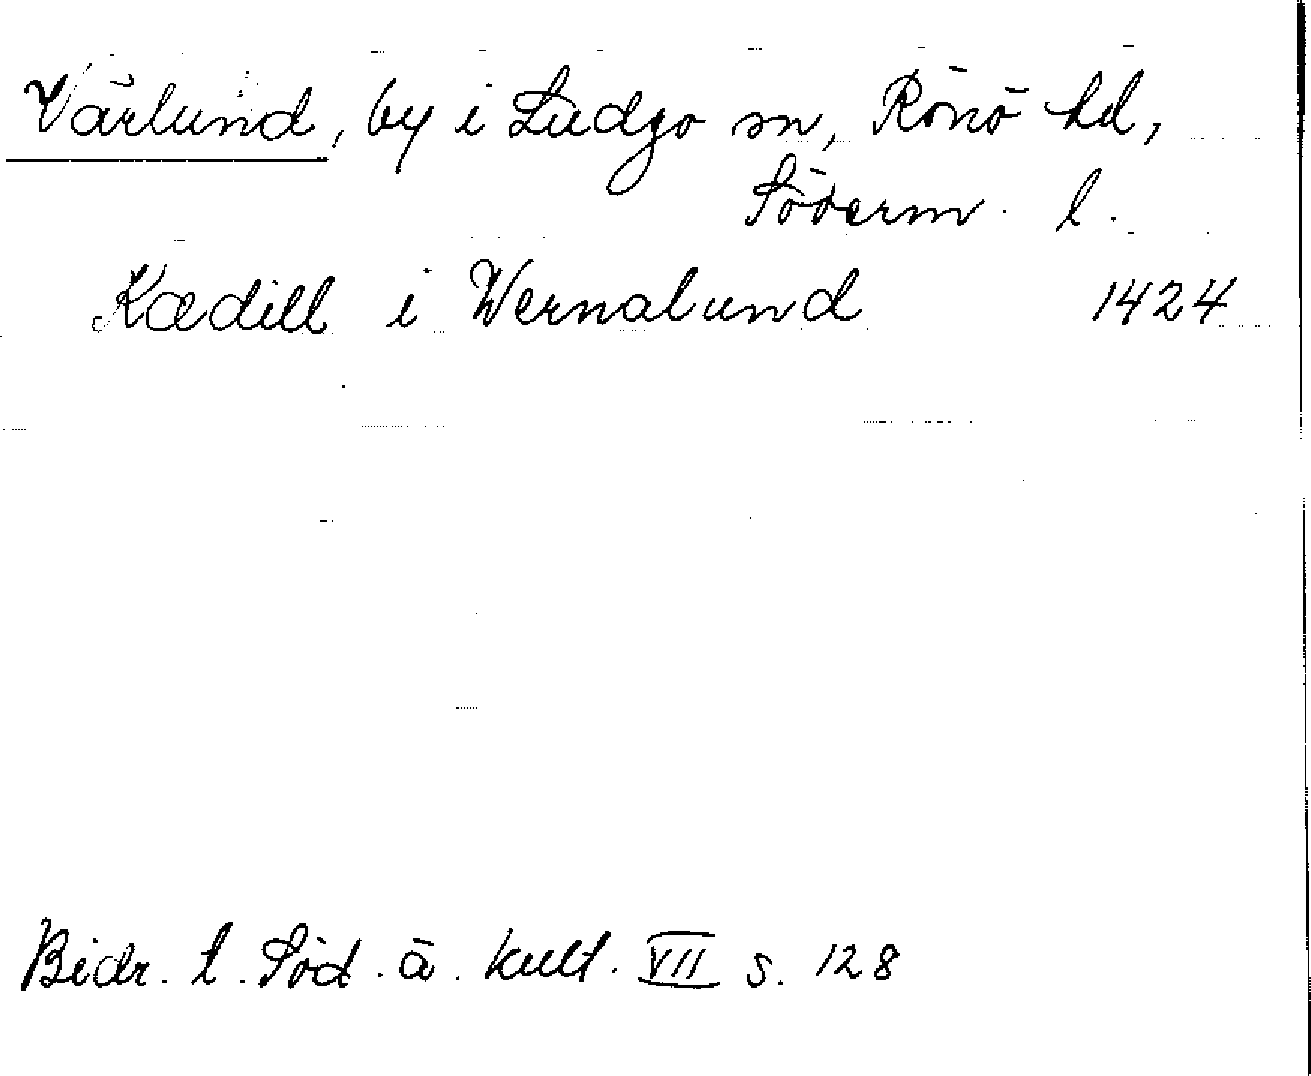 Värlund, by i Ludgo sn, Rönö hd,
Söderm. l.
Kædill i Wernalund 1424
Bidr. t. Söd. ä. kult. VII s. 128